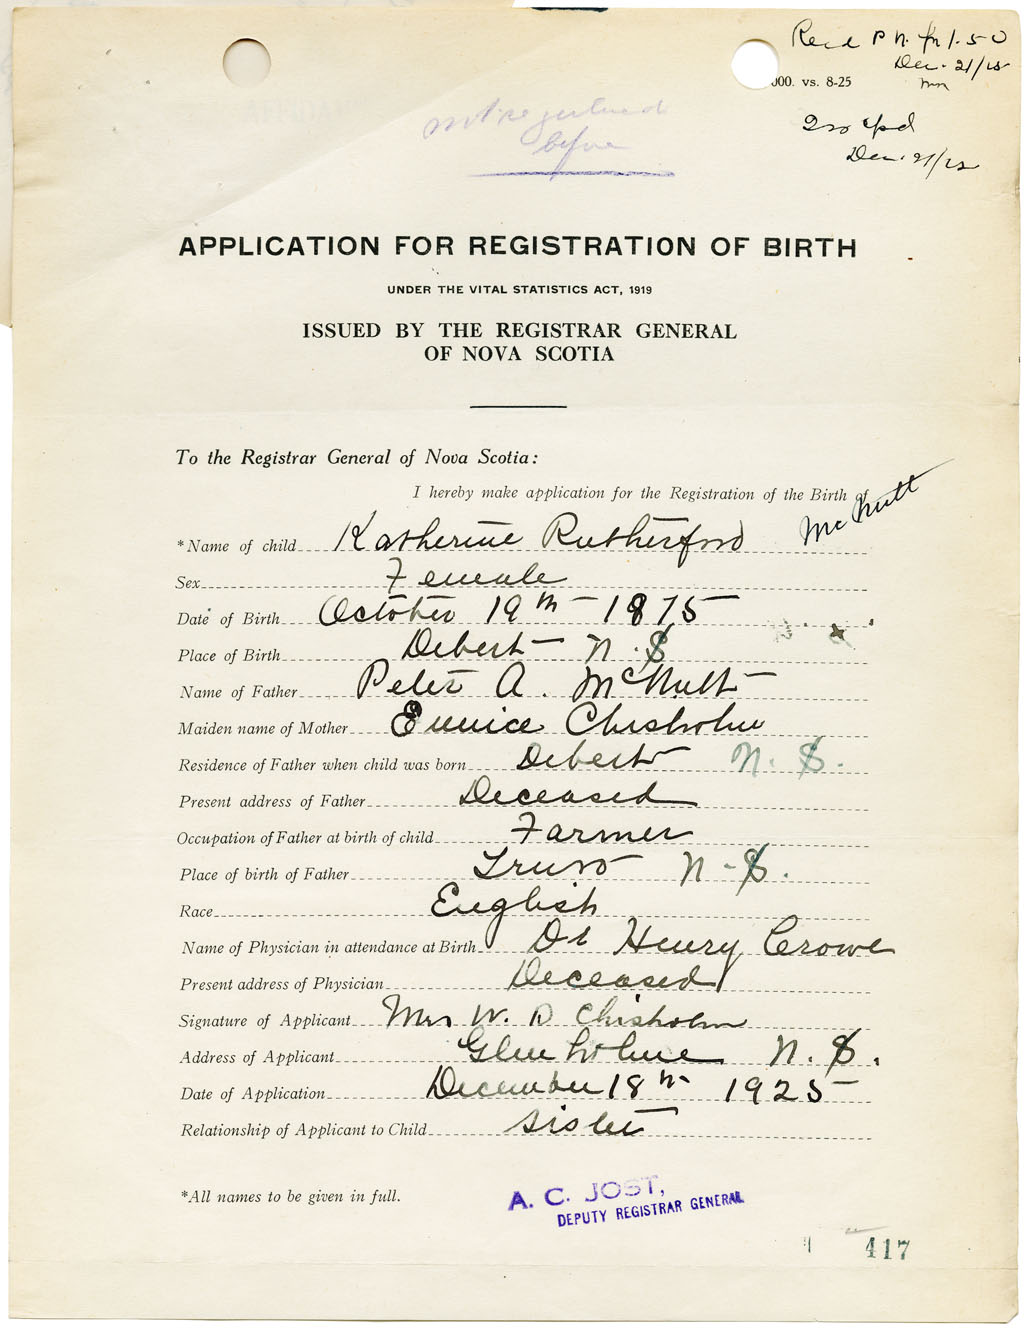 Recd P. N. for 1.50
Dec. 21/25
000. vs. 8-25
not registered
before
Dec. 21/25
APPLICATION FOR REGISTRATION OF BIRTH
UNDER THE VITAL STATISTICS ACT, 1919
ISSUED BY THE REGISTRAR GENERAL
OF NOVA SCOTIA
To the Registrar General of Nova Scotia:
I hereby make application for the Registration of the Birth of
*Name of child Katherine Rutherford McNutt
Sex Female
Date of Birth October 19th 1875
Place of Birth Debert N.S
Name of Father Peter A. McNutt
Maiden name of Mother Eunice Chisholm
Residence of Father when child was born Debert N.S.
Present address of Father Deceased
Occupation of Father at birth of child Farmer
Place of birth of Father Truro N-S.
Race English
Name of Physician in attendance at Birth Dr Henry Crowe
Present address of Physician Deceased
Signature of Applicant Mrs W. D Chisholm
Address of Applicant Glenholme N.S.
Date of Application December 18th 1925
Relationship of Applicant to Child sister
*All names to be given in full.
A. C. JOST,
DEPUTY REGISTRAR GENERAL
417